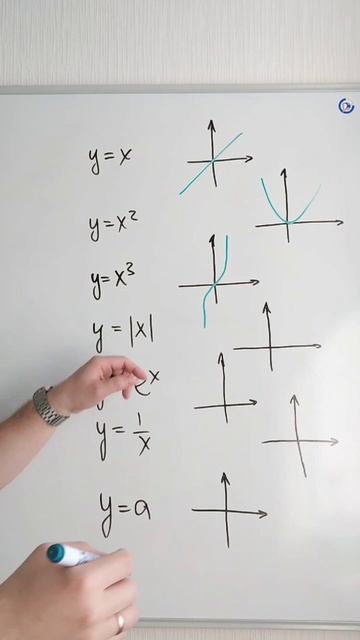 y = x
y = x²
y = x³
y = |x|
x
y = 1/x
y = a